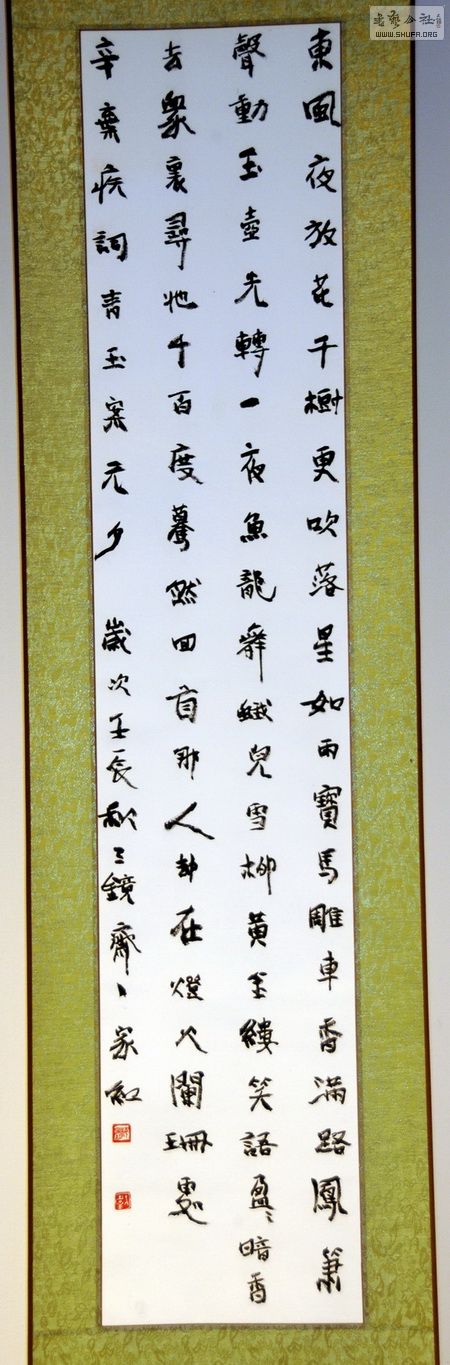 書藝公社
WWW.SHUFA.ORG
東風夜放花千樹更吹落星如雨寶馬雕車香滿路鳳簫
聲動玉壺光轉一夜魚龍舞蛾兒雪柳黃金縷笑語盈〻暗香
去眾裏尋他千百度驀然回首那人卻在燈火闌珊處
辛棄疾詞青玉案元夕 歲次壬辰秋三鏡齋家紅